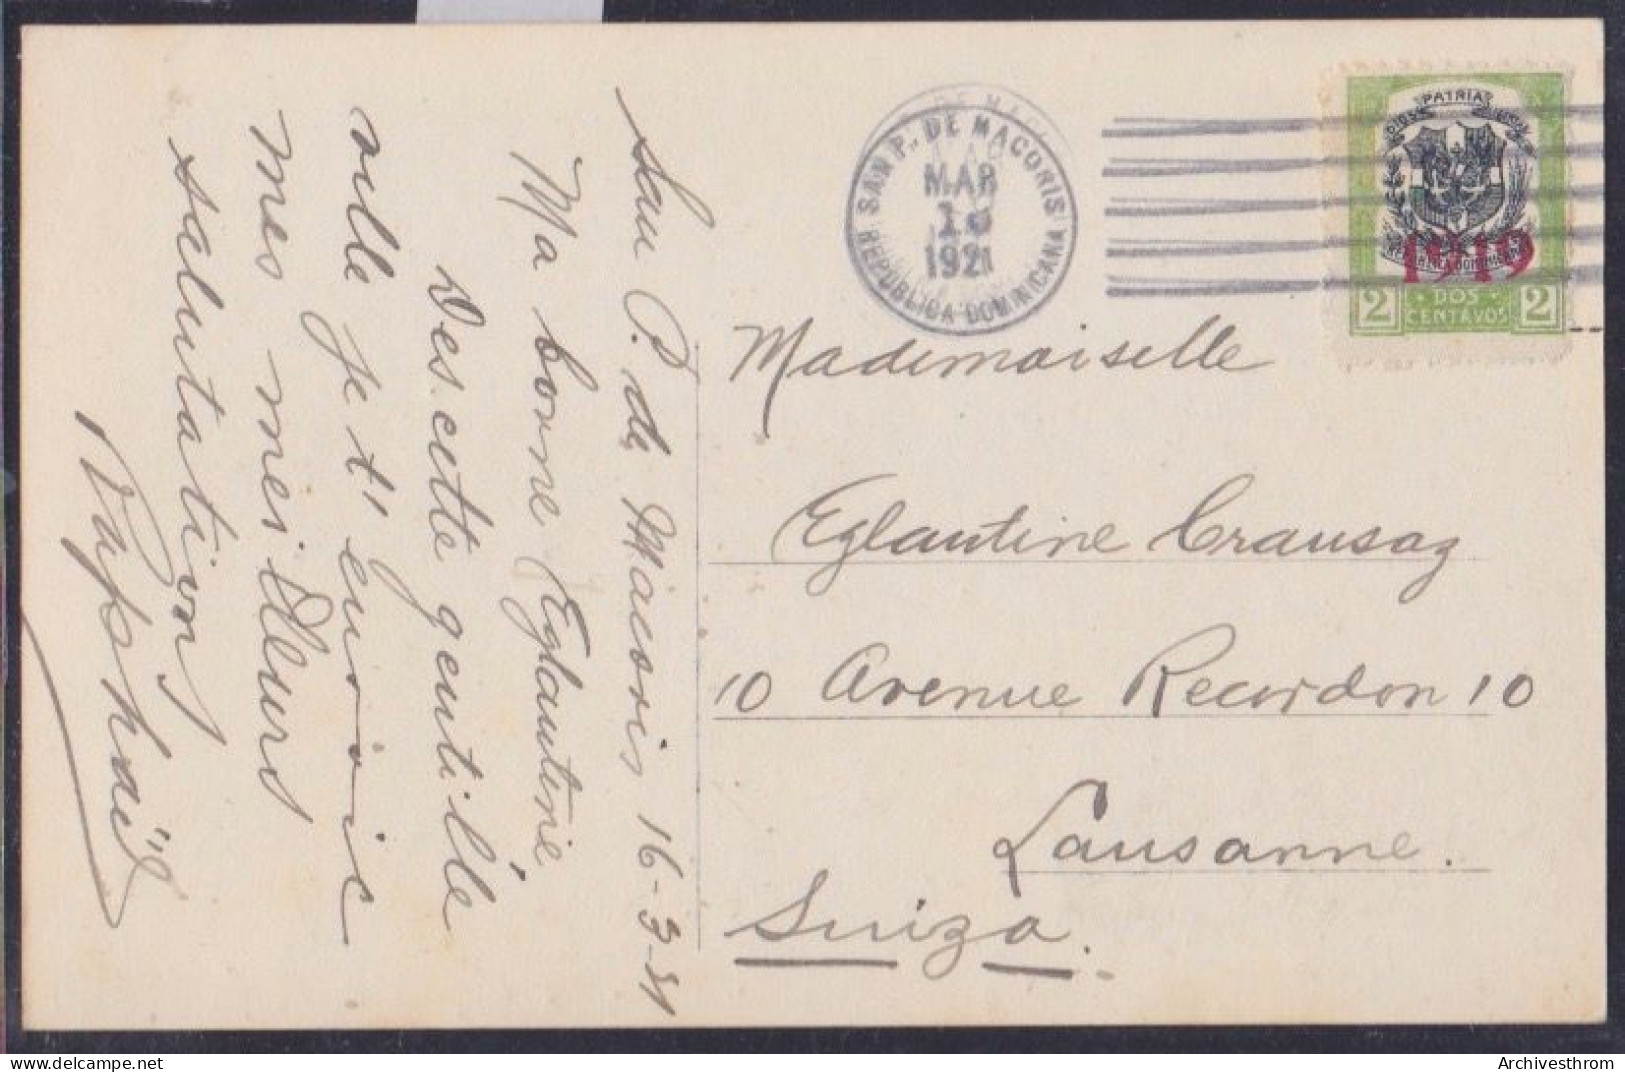 San P. de Macoris 16-3-21
Ma bonne Eglantine
Des cette gentille
ville je t'envoie
mes meilleurs
salutations
Raphaël
SAN P. DE MACORIS
MAR
1921
REPUBLICA DOMINICANA
DIOS PATRIA
REPUBLICA DOMINICANA
1919
2 DOS CENTAVOS 2
Mademoiselle
Eglantine Crausaz
10 Avenue Recordon 10
Lausanne.
Suiza.
Archivesthrom